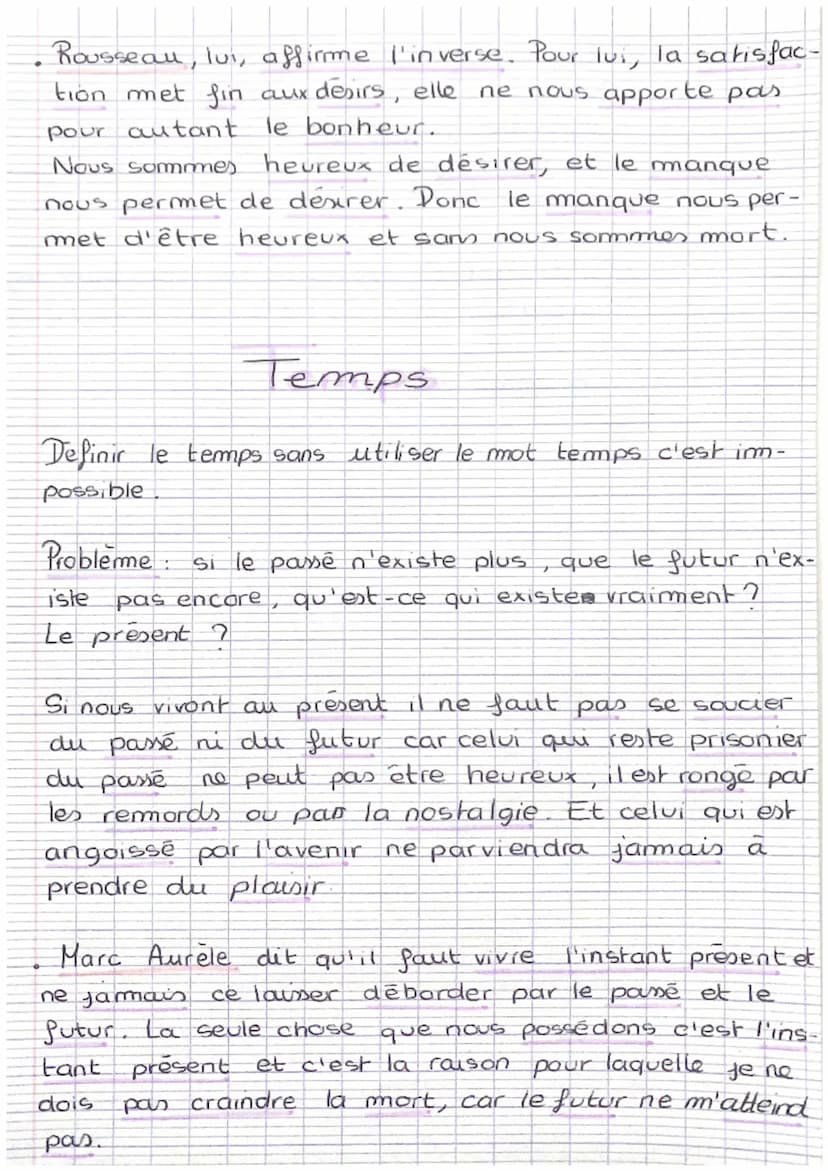 . Rousseau, lui, affirme l'inverse. Pour lui, la satisfac-
tion met fin aux désirs, elle ne nous apporte pas
pour autant le bonheur.
Nous sommes heureux de désirer, et le manque
nous permet de désirer. Donc le manque nous per-
met d'être heureux et sans nous sommes mort.
Temps
Définir le temps sans utiliser le mot temps c'est im-
possible.
Problème : si le passé n'existe plus, que le futur n'ex-
iste pas encore, qu'est-ce qui existe vraiment ?
Le présent ?
Si nous vivont au présent il ne faut pas se soucier
du passé ni du futur car celui qui reste prisonier
du passé ne peut pas être heureux, il est rongé par
les remords ou par la nostalgie. Et celui qui est
angoissé par l'avenir ne parviendra jamais à
prendre du plaisir.
. Marc Aurèle dit qu'il faut vivre l'instant présent et
ne jamais ce laisser déborder par le passé et le
futur. La seule chose que nous possédons c'est l'ins-
tant présent et c'est la raison pour laquelle je ne
dois pas craindre la mort, car le futur ne m'atteind
pas.